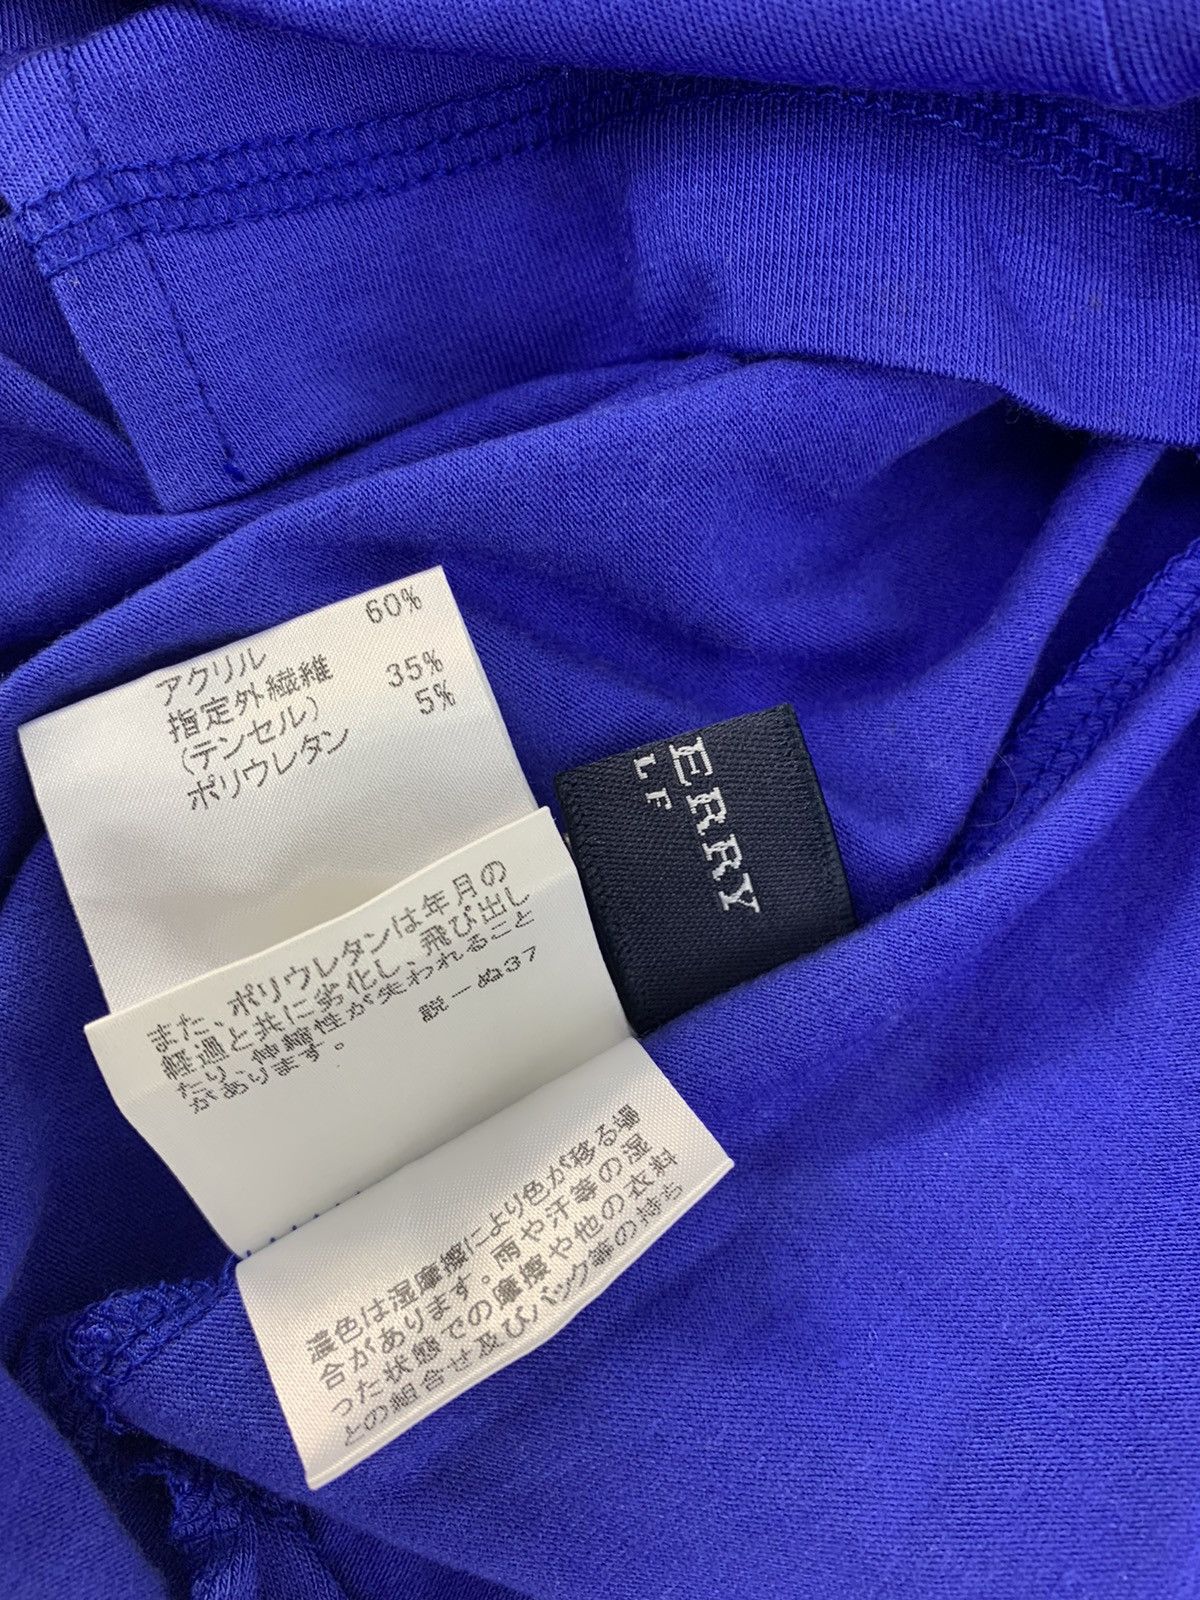 アクリル 60%
指定外繊維
(テンセル) 35%
ポリウレタン 5%
また、ポリウレタンは年月の
経過と共に劣化し、飛び出し
たり、伸縮性が失われること
があります。
説-ぬ37
濃色は湿摩擦により色が移る場
合があります。雨や汗等の湿
った状態での摩擦や他の衣料
との組合せ及びバック等の持ち
ERRY
LF